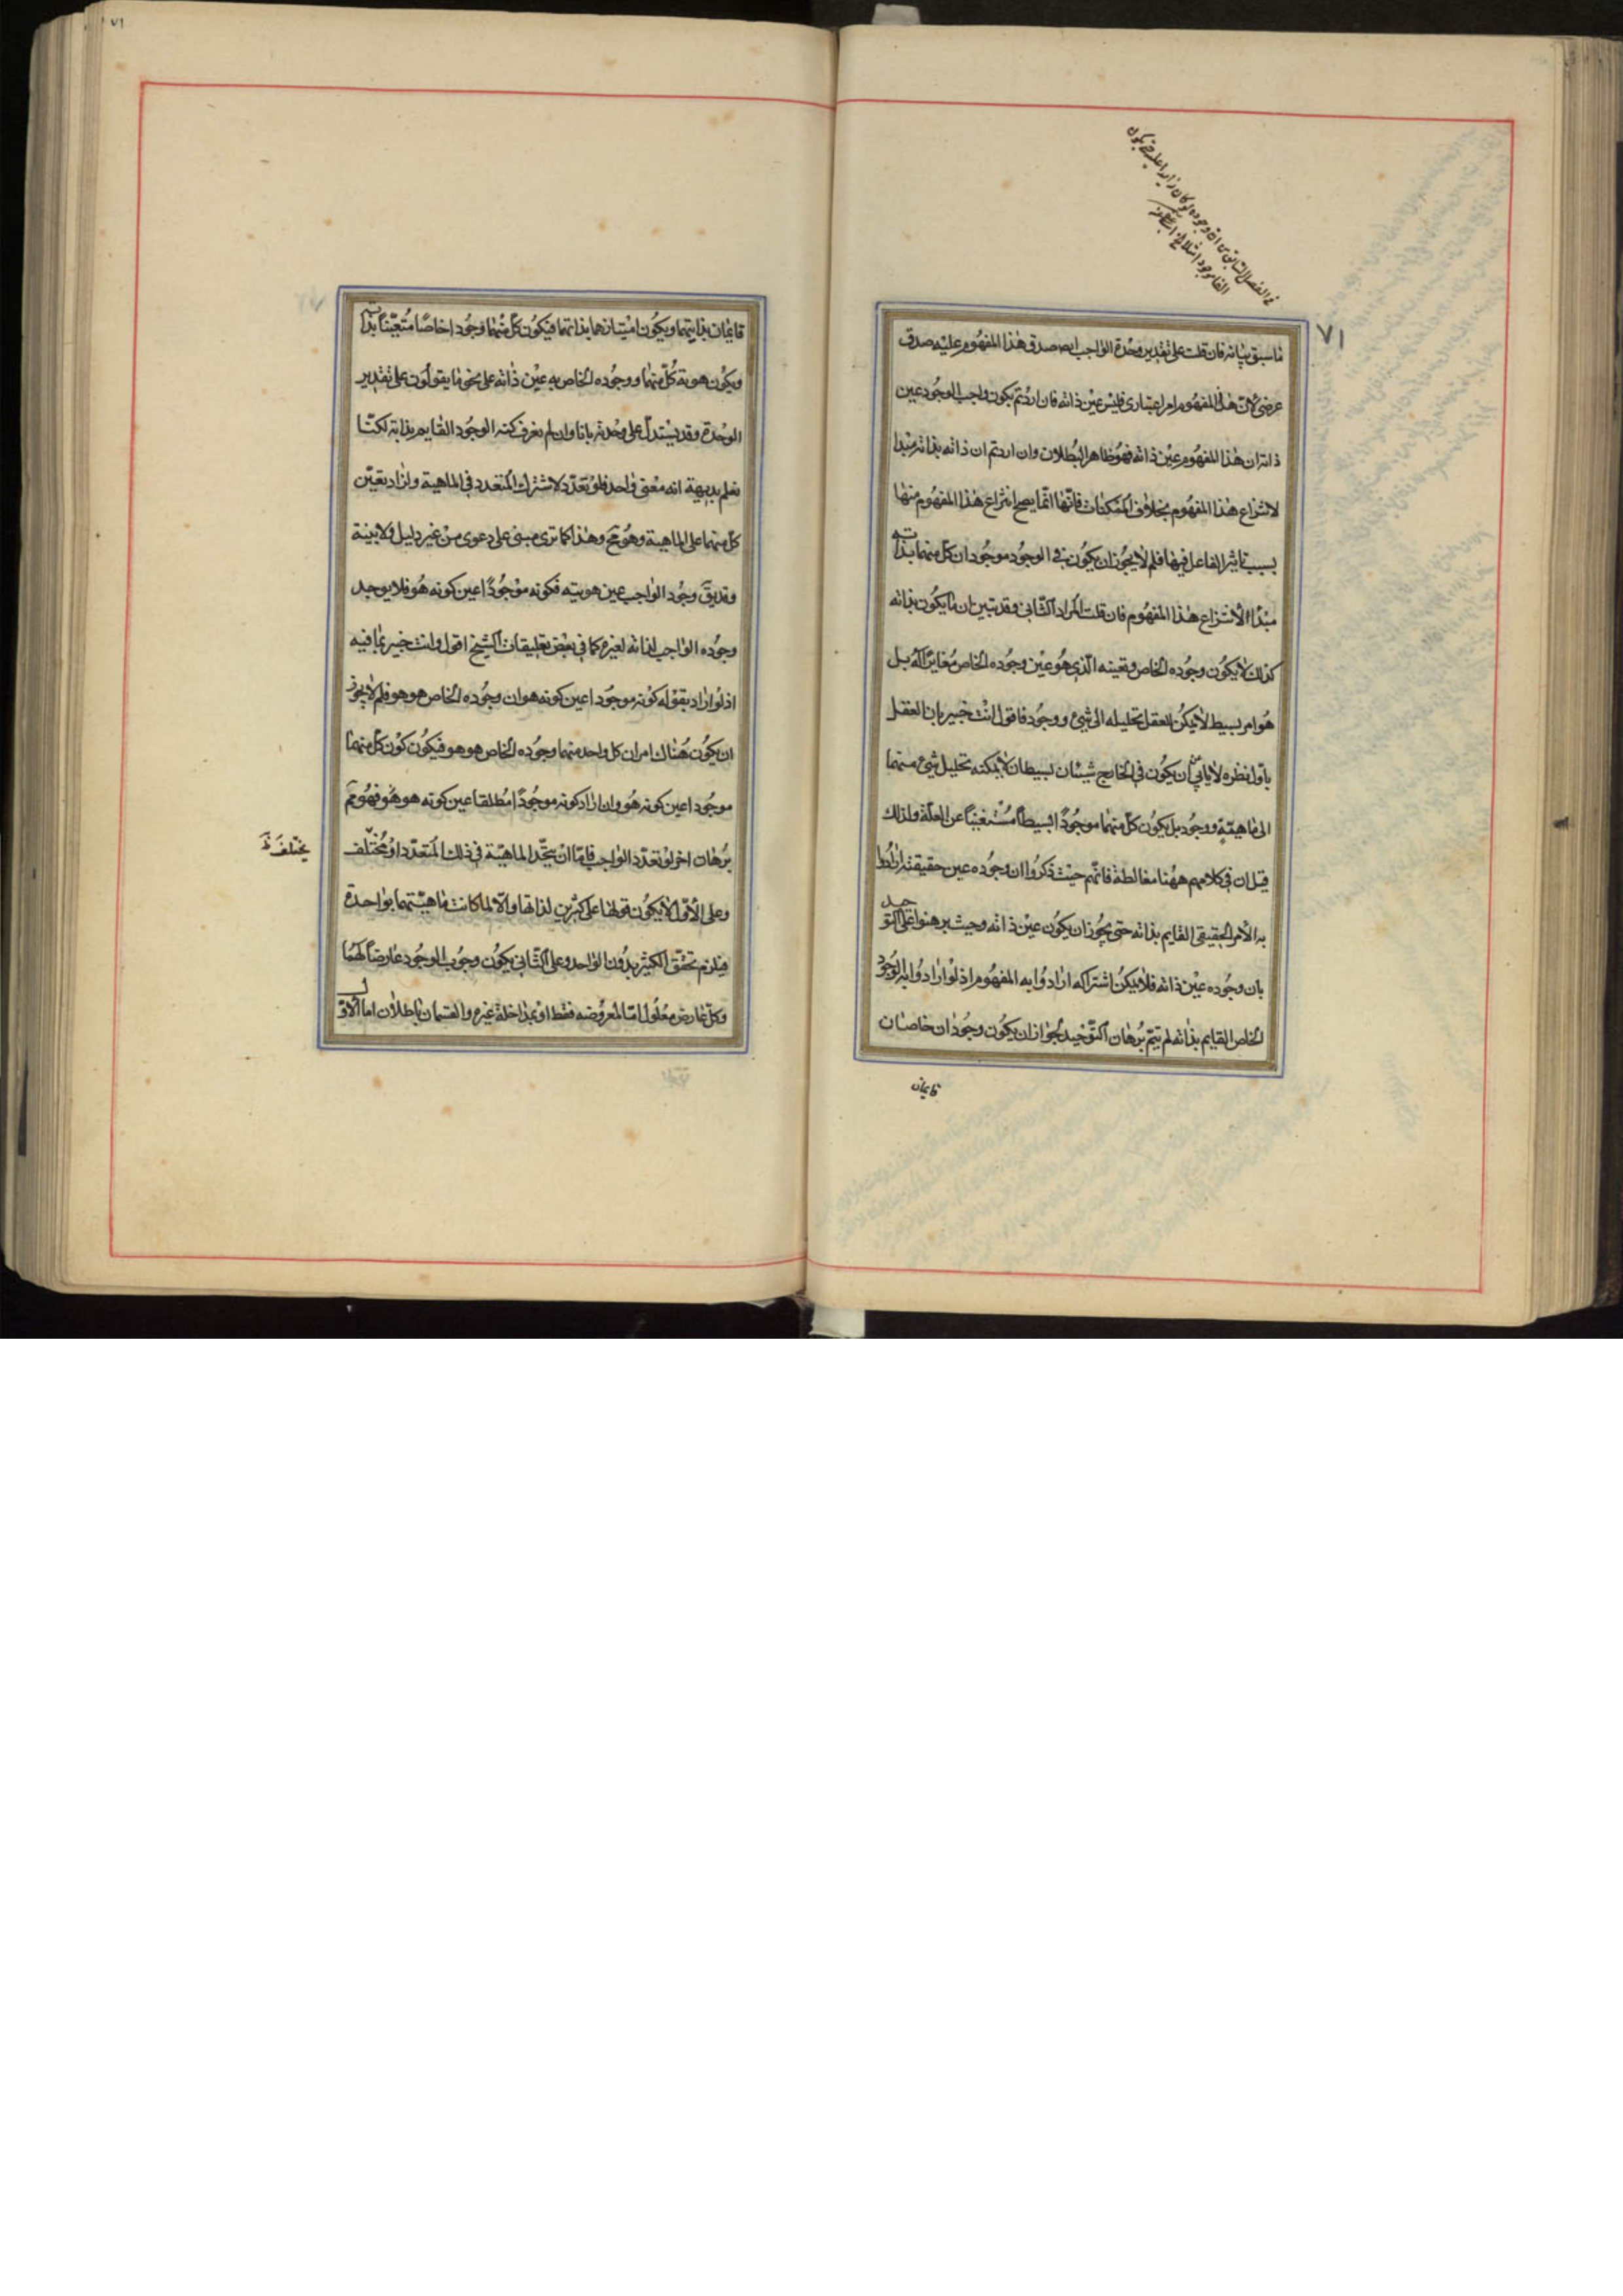 ٧١
في الفصل السابق من ان وجوده لو كان زايدا عليه حتى يكون
٧١
ما سبق بيانه فان قلت على تقدير وحدة الواجب ايضه صدق هذا المفهوم عليه صدق
عرضي لانّ هذا المفهوم امر اعتباري فليس عين ذاته فان اردتم بكون واجب الوجود عين
ذاته ان هذا المفهوم عين ذاته فهو ظاهر البطلان وان اردتم ان ذاته بذاته مبدا
لانتزاع هذا المفهوم بخلاف الممكنات فانها انّما يصح انتزاع هذا المفهوم منها
بسبب تاثير الفاعل فيها فلم لا يجوز ان يكون في الوجود موجودان كلّ منهما بذاته
مبدأ لانتزاع هذا المفهوم فان قلت المراد الثاني وقد تبين ان ما يكون بذاته
كذلك لا يكون وجوده الخاص وتعينه الّذي هو عين وجوده الخاص مغايرًا له بل
هو امر بسيط لا يمكن للعقل تحليله الى شيئ ووجود فاقول انت خبير بان العقل
باوّل نظره لا يابي ان يكون في الخارج شيئان بسيطان لا يمكنه تحليل شيئ منهما
الى ماهيّة ووجود بل يكون كلّ منهما موجودًا بسيطًا مستغنيًا عن العلّة ولذلك
قيل ان في كلامهم ههنا مغالطة فانّهم حيث ذكروا ان وجوده عين حقيقته ارادوا
به الامر الحقيقي القايم بذاته حتى يجوز ان يكون عين ذاته وحيث برهنوا على التوحيد
بان وجوده عين ذاته فلا يمكن اشتراكه ارادوا به المفهوم اذ لو ارادوا به الوجود
الخاص القايم بذاته لم يتمّ برهان التّوحيد لجواز ان يكون وجودان خاصان
قايمان
قايمان بذاتيهما ويكون امتيازهما بذاتهما فيكون كلّ منهما وجودا خاصًّا متعيّنًا بذاته
ويكون هوية كلّ منهما ووجوده الخاص به عين ذاته على نحو ما يقولون على تقدير
الوحدة وقد يستدلّ على وحدته بانا وان لم نعرف كنه الوجود القايم بذاته لكنّا
نعلم بديهة انه معنى واحد فلو تعدّد لاشترك المتعدد في الماهية ولزاد تعيّن
كلّ منهما على الماهية وهو مح وهذا كما ترى مبني على دعوى من غير دليل ولا بيّنة
وقد يق وجود الواجب عين هويته فكونه موجودًا عين كونه هو فلا يوجد
وجوده الواجب لذاته لغيره كما في بعض تعليقات الشيخ اقول وانت خبير بما فيه
اذ لو اراد بقوله كونه موجودا عين كونه هو ان وجوده الخاص هو هو فلم لا يجوز
ان يكون هناك امران كل واحد منهما وجوده الخاص هو هو فيكون كون كلّ منهما
موجودا عين كونه هو وان اراد كونه موجودًا مطلقا عين كونه هو هو فهو مم
برهان اخر لو تعدّد الواجب فامّا ان يتّحد الماهيّة في ذلك المتعدّد او مختلف
يختلف ظ
وعلى الاوّل لا يكون قولها على كثيرين لذاتها والّا لما كانت ماهيّتهما بواحدة
فيلزم تحقق الكثير بدون الواحد وعلى الثّاني يكون وجوب الوجود عارضًا لهما
وكلّ عارض معلول امّا لمعروضه فقط او بمداخلة غيره والقسمان باطلان اما الاوّل